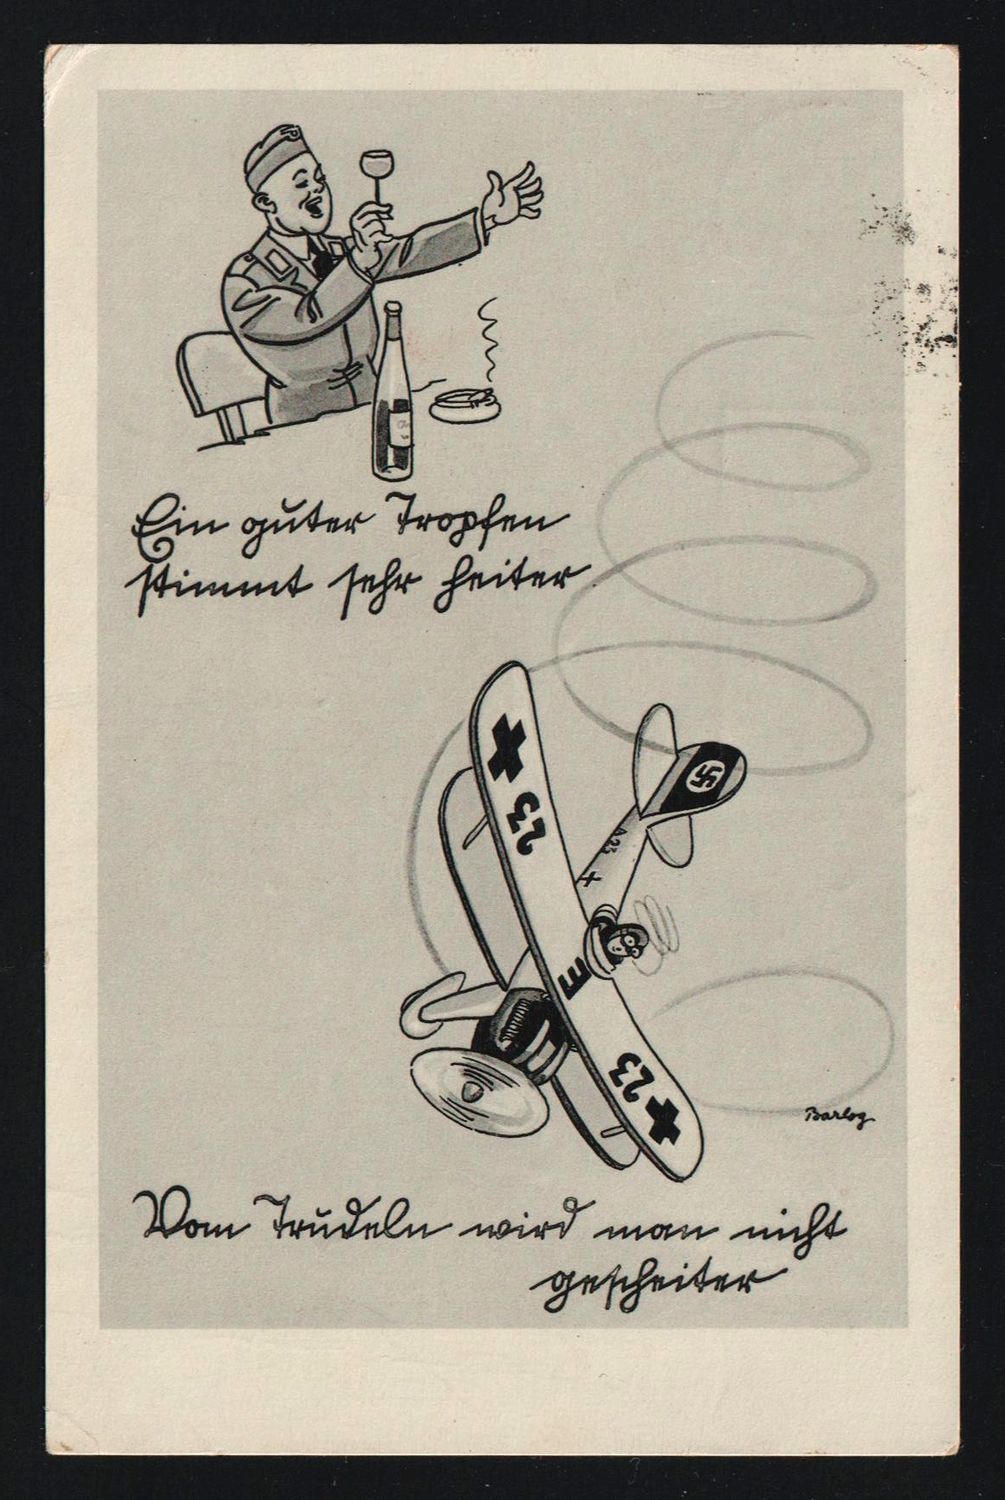 Ein guter Tropfen
stimmt sehr heiter
23
A23
E
23
Barlog
Vom Trudeln wird man nicht
gescheiter